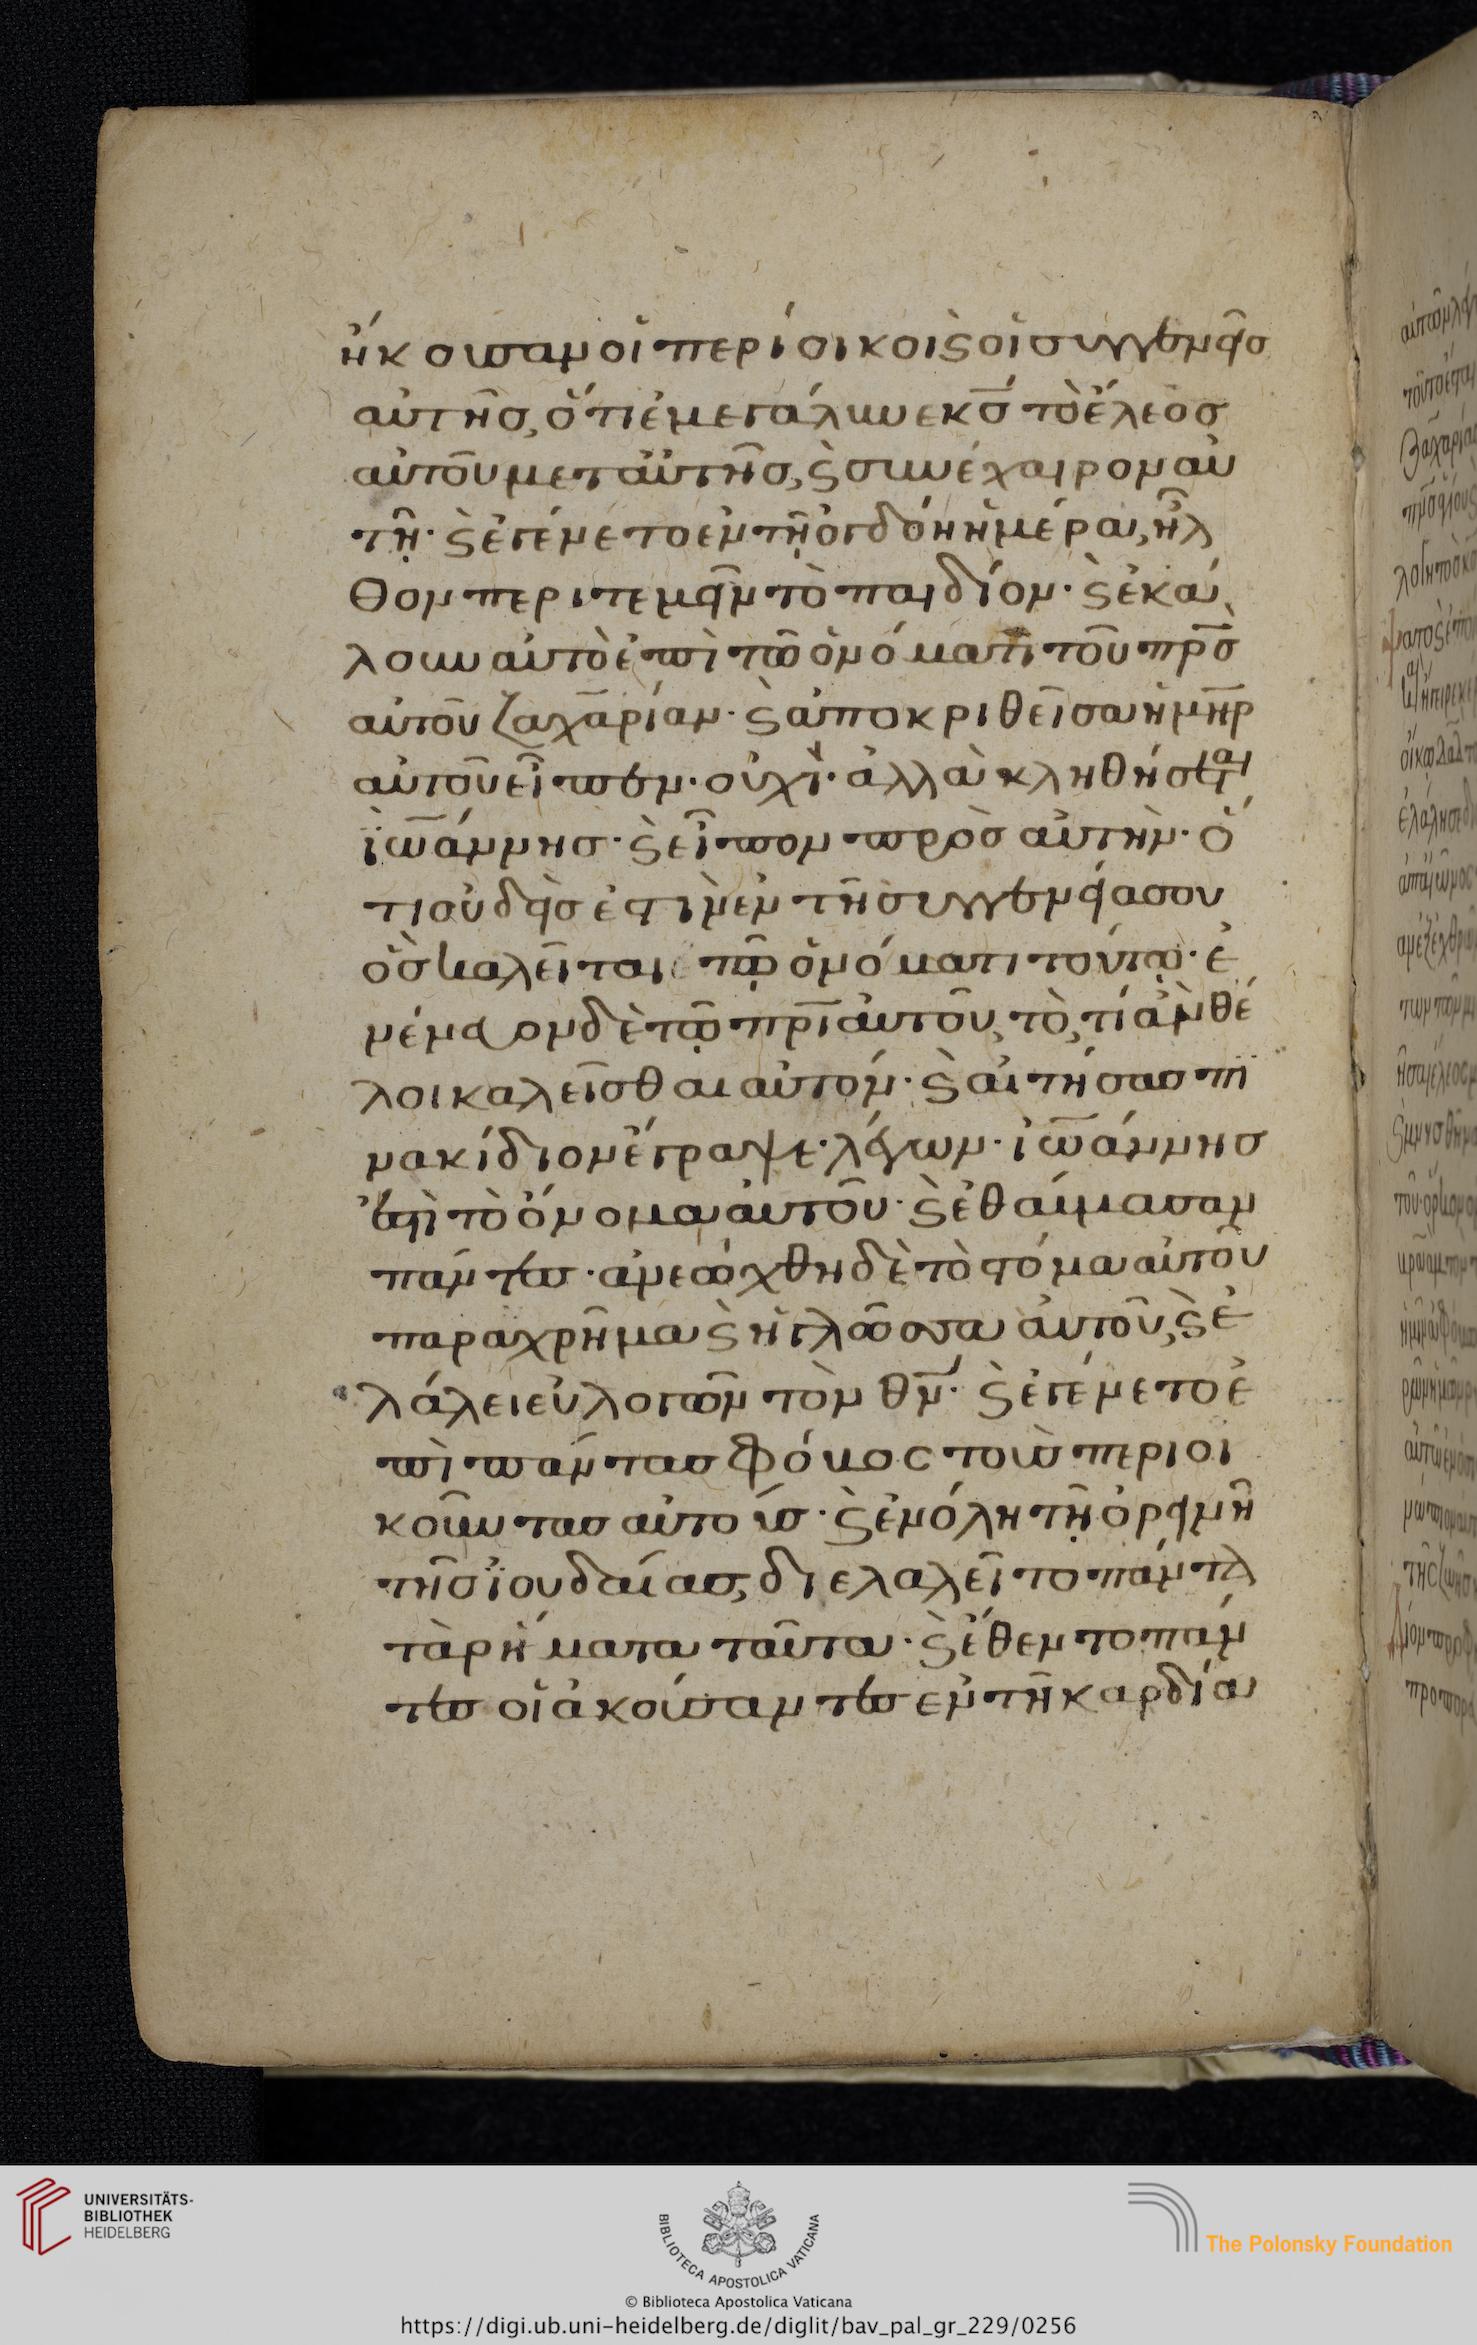 ἤκουσαν οἱ περίοικοι ϗ οἱ συγγενεῖσ
αὐτῆσ, ὅτι ἐμεγάλυνε κ̅σ̅ τὸ ἔλεοσ
αὐτοῦ μετ αὐτῆσ, ϗ συνέχαιρον αὐ
τῇ· ϗ ἐγένετο ἐν τῇ ὀγδόη ἡμέρα, ἦλ
θον περιτεμεῖν τὸ παιδίον· ϗ ἐκά
λουν αὐτὸ ἐπὶ τῶ ὀνόματι τοῦ π̅ρ̅σ̅
αὐτοῦ ζαχαρίαν· ϗ ἀποκριθεῖσα ἡ μ̅η̅ρ̅
αὐτοῦ εἶπεν· οὐχὶ· ἀλλὰ κληθήσεται
ἰ̈ωάννησ· ϗ εἶπον πρὸσ αὐτὴν· ὅ
τι οὐδεὶσ ἐστὶν ἐν τῆ συγγενείασου
ὃσ καλεῖται τῷ ὀνόματι τούτῳ· ἐ
νένευον δὲ τῷ π̅ρ̅ι̅ αὐτοῦ, τὸ, τί ἂν θέ
λοι καλεῖσθαι αὐτόν· ϗ αἰτήσασ πι
νακίδιον ἔγραψε· λέγων· ἰωάννησ
ἐστὶ τὸ ὄνομα αὐτοῦ· ϗ ἐθαύμασαν
πάντεσ· ἀνεώχθη δὲ τὸ στόμα αὐτοῦ
παραχρῆμα ϗ ἡ γλῶσσα αὐτοῦ, ϗ ἐ
λάλει εὐλογῶν τὸν θ̅ν̅· ϗ ἐγένετο ἐ
πὶ πάντασ φόβοσ τοὺσ περιοι
κοῦντασ αὐτούσ· ϗ ἐν ὅλη τῇ ὀρεινῆ
τῆσ ἰ̈ουδαίασ, διελαλεῖτο πάντα
τὰ ρήματα ταῦτα· ϗ ἔθεντο πάν
τεσ οἱ ἀκούσαντεσ ἐν τῆ καρδία
UNIVERSITÄTS-
BIBLIOTHEK
HEIDELBERG
BIBLIOTECA APOSTOLICA VATICANA
© Biblioteca Apostolica Vaticana
The Polonsky Foundation
https://digi.ub.uni-heidelberg.de/diglit/bav_pal_gr_229/0256